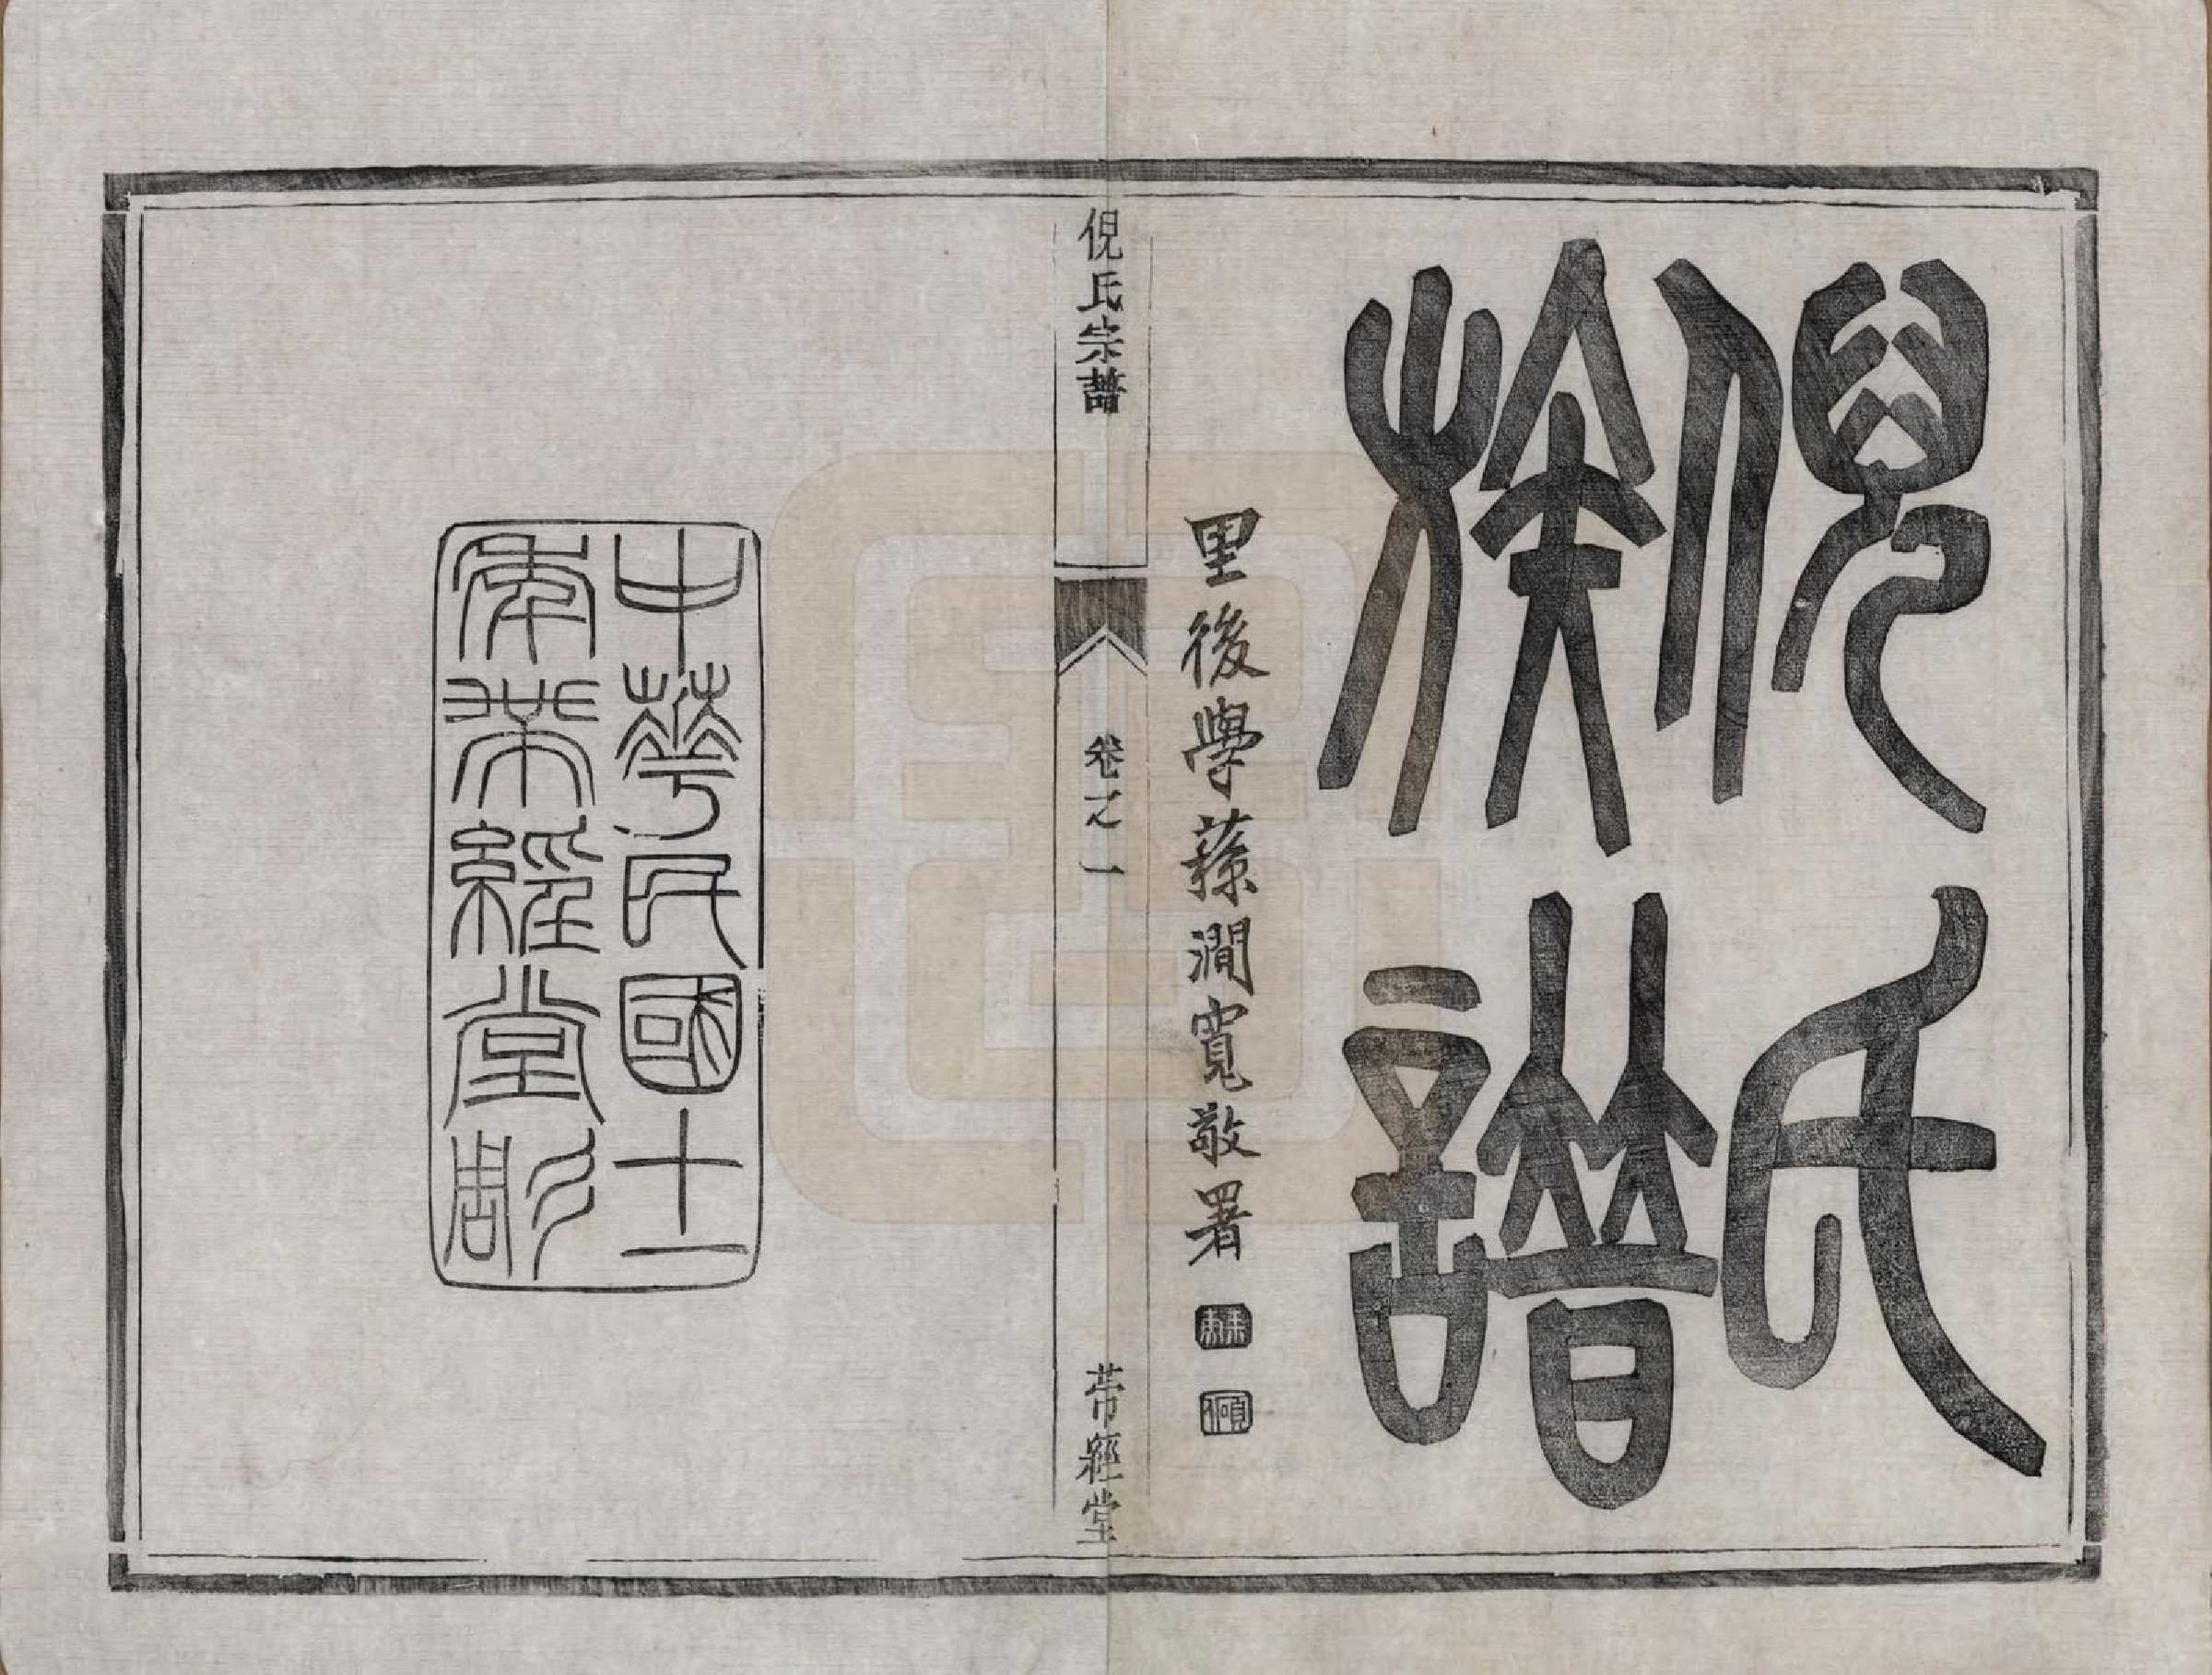 倪氏
族譜
里後學蓀澗寬敬署
倪氏宗譜
卷之一
帶經堂
中華民國十一
年帶經堂彫